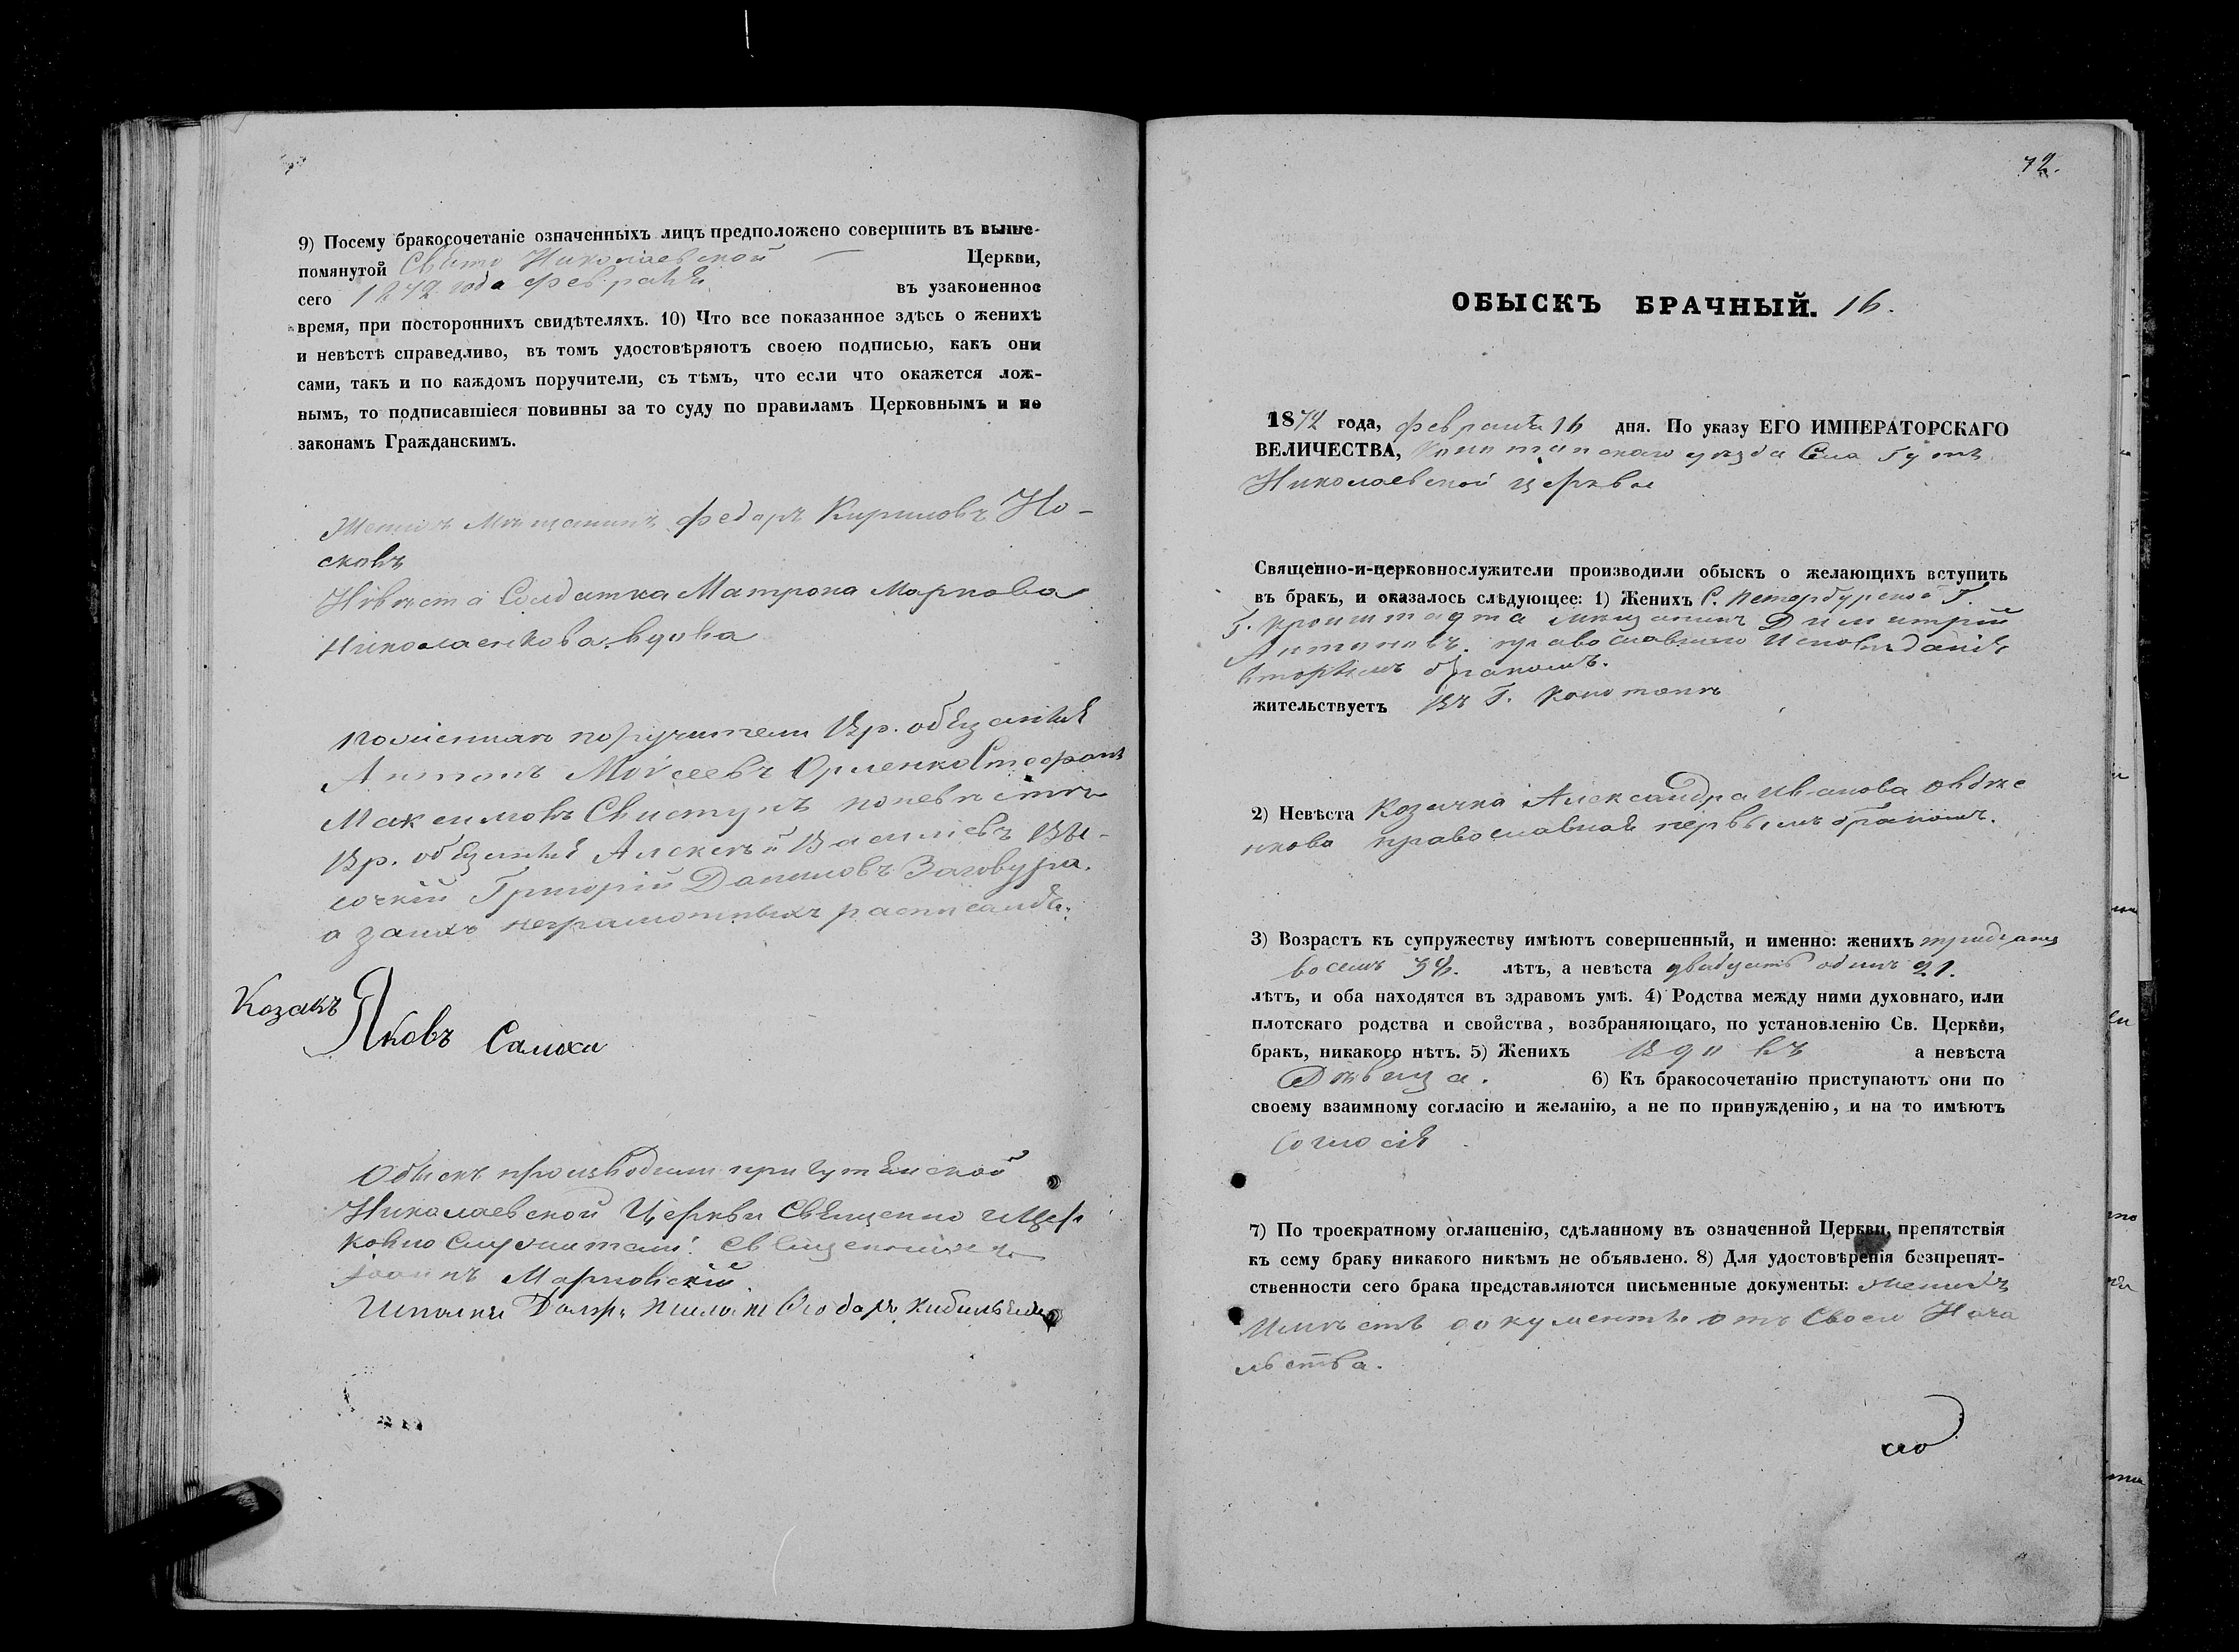 9) Посему бракосочетаніе означенныхъ лицъ предположено совершить въ выше-
помянутой Свято Николаевской — Церкви,
сего 1872 года февраля въ узаконенное
время, при постороннихъ свидѣтеляхъ. 10) Что все показанное здѣсь о женихѣ
и невѣстѣ справедливо, въ томъ удостовѣряютъ своею подписью, какъ они
сами, такъ и по каждомъ поручители, съ тѣмъ, что если что окажется лож-
нымъ, то подписавшіеся повинны за то суду по правиламъ Церковнымъ и по
законамъ Гражданскимъ.
Женихъ Мѣщанинъ Федоръ Кириловъ Но-
сковъ
Невѣста Солдатка Матрона Маркова
Николаенкова вдова
По женихѣ поручители Вр. обязанные
Антонъ Моисеевъ Орленко Стефанъ
Максимовъ Свистунъ по невѣсте
Вр. обязанные Алексѣй Васильевъ Вы-
соцкій Григорій Даниловъ
а за ихъ неграмотныхъ росписался
Козакъ
Яковъ Самоха
Обыскъ производили при Гутянской
Николаевской Церкви Священно и Цер
ковно служители: Священникъ
Іоаннъ Марковскій
72.
ОБЫСКЪ БРАЧНЫЙ. 16.
1872 года, февраля 16 дня. По указу ЕГО ИМПЕРАТОРСКАГО
ВЕЛИЧЕСТВА, Конотопскаго уѣзда Села Гутъ
Николаевской церкви
Священно-и-церковнослужители производили обыскъ о желающихъ вступить
въ бракъ, и оказалось слѣдующее: 1) Женихъ С. Петербурской Г.
Г. Кронштадта мѣщанинъ Димитрій
Антоновъ православнаго Исповѣданія
вторымъ бракомъ.
жительствуетъ Въ Г. Конотопѣ
2) Невѣста Козачка Александра Иванова Овдіе
нкова православная первымъ бракомъ.
3) Возрастъ къ супружеству имѣютъ совершенный, и именно: женихъ тридцать
восемь 38. лѣтъ, а невѣста двадцать одинъ 21.
лѣтъ, и оба находятся въ здравомъ умѣ. 4) Родства между ними духовнаго, или
плотскаго родства и свойства, возбраняющаго, по установленію Св. Церкви,
бракъ, никакого нѣтъ. 5) Женихъ Вдовъ а невѣста
Дѣвица. 6) Къ бракосочетанію приступаютъ они по
своему взаимному согласію и желанію, а не по принужденію, и на то имѣютъ
Согласія
7) По троекратному оглашенію, сдѣланному въ означенной Церкви, препятствія
къ сему браку никакого никѣмъ не объявлено. 8) Для удостовѣренія безпрепят-
ственности сего брака представляются письменные документы: Женихъ
Имѣетъ документъ отъ Своего Нача
льства.